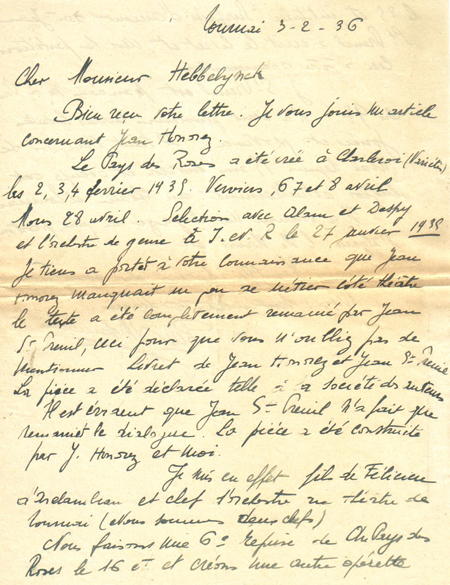 Tournai 3-2-36
Cher Monsieur Hebbelynck
Bien reçu votre lettre. Je vous joins un article
concernant Jean Honorez.
Le Pays des Roses a été créé à Charleroi (Variétés)
les 2, 3, 4 février 1935. Verviers, 6 7 et 8 avril
Mons 28 avril. Sélection avec Alain et Despy
et l'orchestre de genre à I.N.R le 27 janvier 1935
Je tiens a porter à votre connaissance que Jean
Honorez manquait un peu de métier côté théâtre
le texte a été complètement remanié par Jean
St Treuil, ceci pour que vous n'oubliez pas de
mentionner Livret de Jean Honorez et Jean St Treuil
La pièce a été déclarée telle à la société des auteurs
Il est évident que Jean St Treuil n'a fait que
remanier le dialogue. La pièce a été construite
par J. Honorez et moi.
Je suis en effet fils de Félicien
d'Ardambeau et chef d'orchestre au théâtre de
Tournai (Nous sommes deux chefs)
Nous faisons une 6e reprise de Au Pays des
Roses le 16 ct et créons une autre opérette